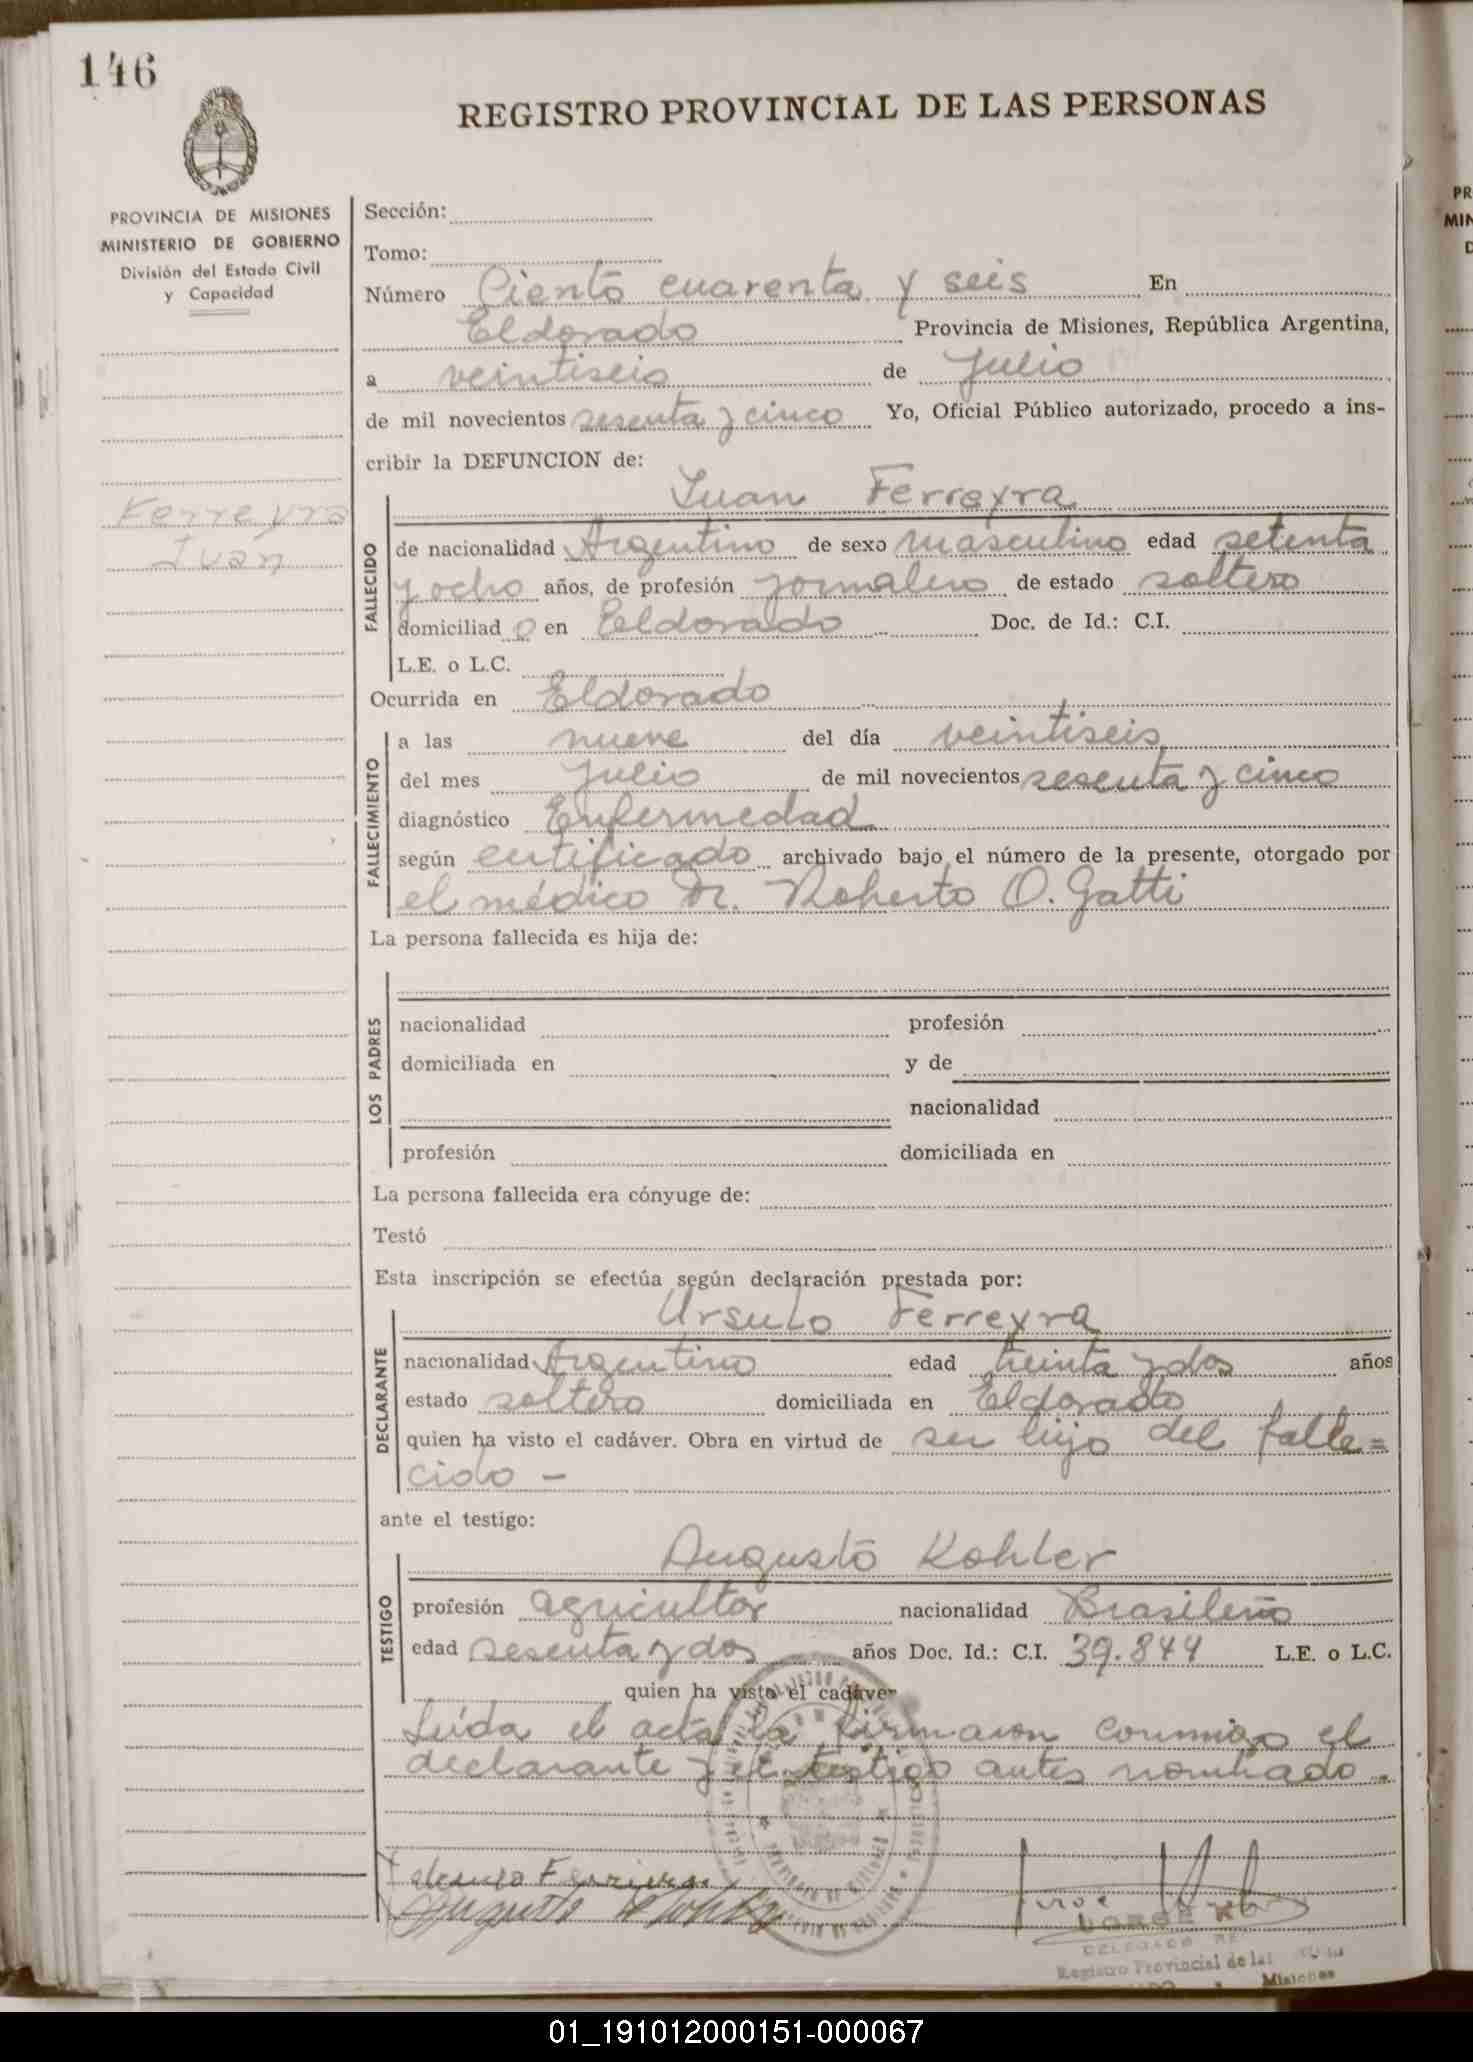 146
REGISTRO PROVINCIAL DE LAS PERSONAS
PROVINCIA DE MISIONES
MINISTERIO DE GOBIERNO
División del Estado Civil
y Capacidad
Ferreyra
Juan
Sección:
Tomo:
Número Ciento cuarenta y seis En
Eldorado Provincia de Misiones, República Argentina,
a veintiseis de Julio
de mil novecientos sesenta y cinco Yo, Oficial Público autorizado, procedo a ins-
cribir la DEFUNCION de:
Juan Ferreyra
FALLECIDO
de nacionalidad Argentino de sexo masculino edad setenta
y ocho años, de profesión jornalero de estado soltero
domiciliad o en Eldorado Doc. de Id.: C.I.
L.E. o L.C.
Ocurrida en Eldorado
FALLECIMIENTO
a las nueve del día veintiseis
del mes Julio de mil novecientos sesenta y cinco
diagnóstico Enfermedad
según certificado archivado bajo el número de la presente, otorgado por
el médico Dr. Roberto O. Gatti
La persona fallecida es hija de:
LOS PADRES
nacionalidad profesión
domiciliada en y de
nacionalidad
profesión domiciliada en
La persona fallecida era cónyuge de:
Testó
Esta inscripción se efectúa según declaración prestada por:
Ursulo Ferreyra
DECLARANTE
nacionalidad Argentino edad treinta y dos años
estado soltero domiciliada en Eldorado
quien ha visto el cadáver. Obra en virtud de ser hijo del falle=
cido -
ante el testigo:
Augusto Kohler
TESTIGO
profesión agricultor nacionalidad Brasileño
edad sesenta y dos años Doc. Id.: C.I. 39.844 L.E. o L.C.
quien ha visto el cadáver
Leída el acta la firmaron conmigo el
declarante y el testigo antes nombrado.
Augusto Kohler
JORGE
DELEGADO
Registro Provincial de las
Misiones
01_191012000151-000067